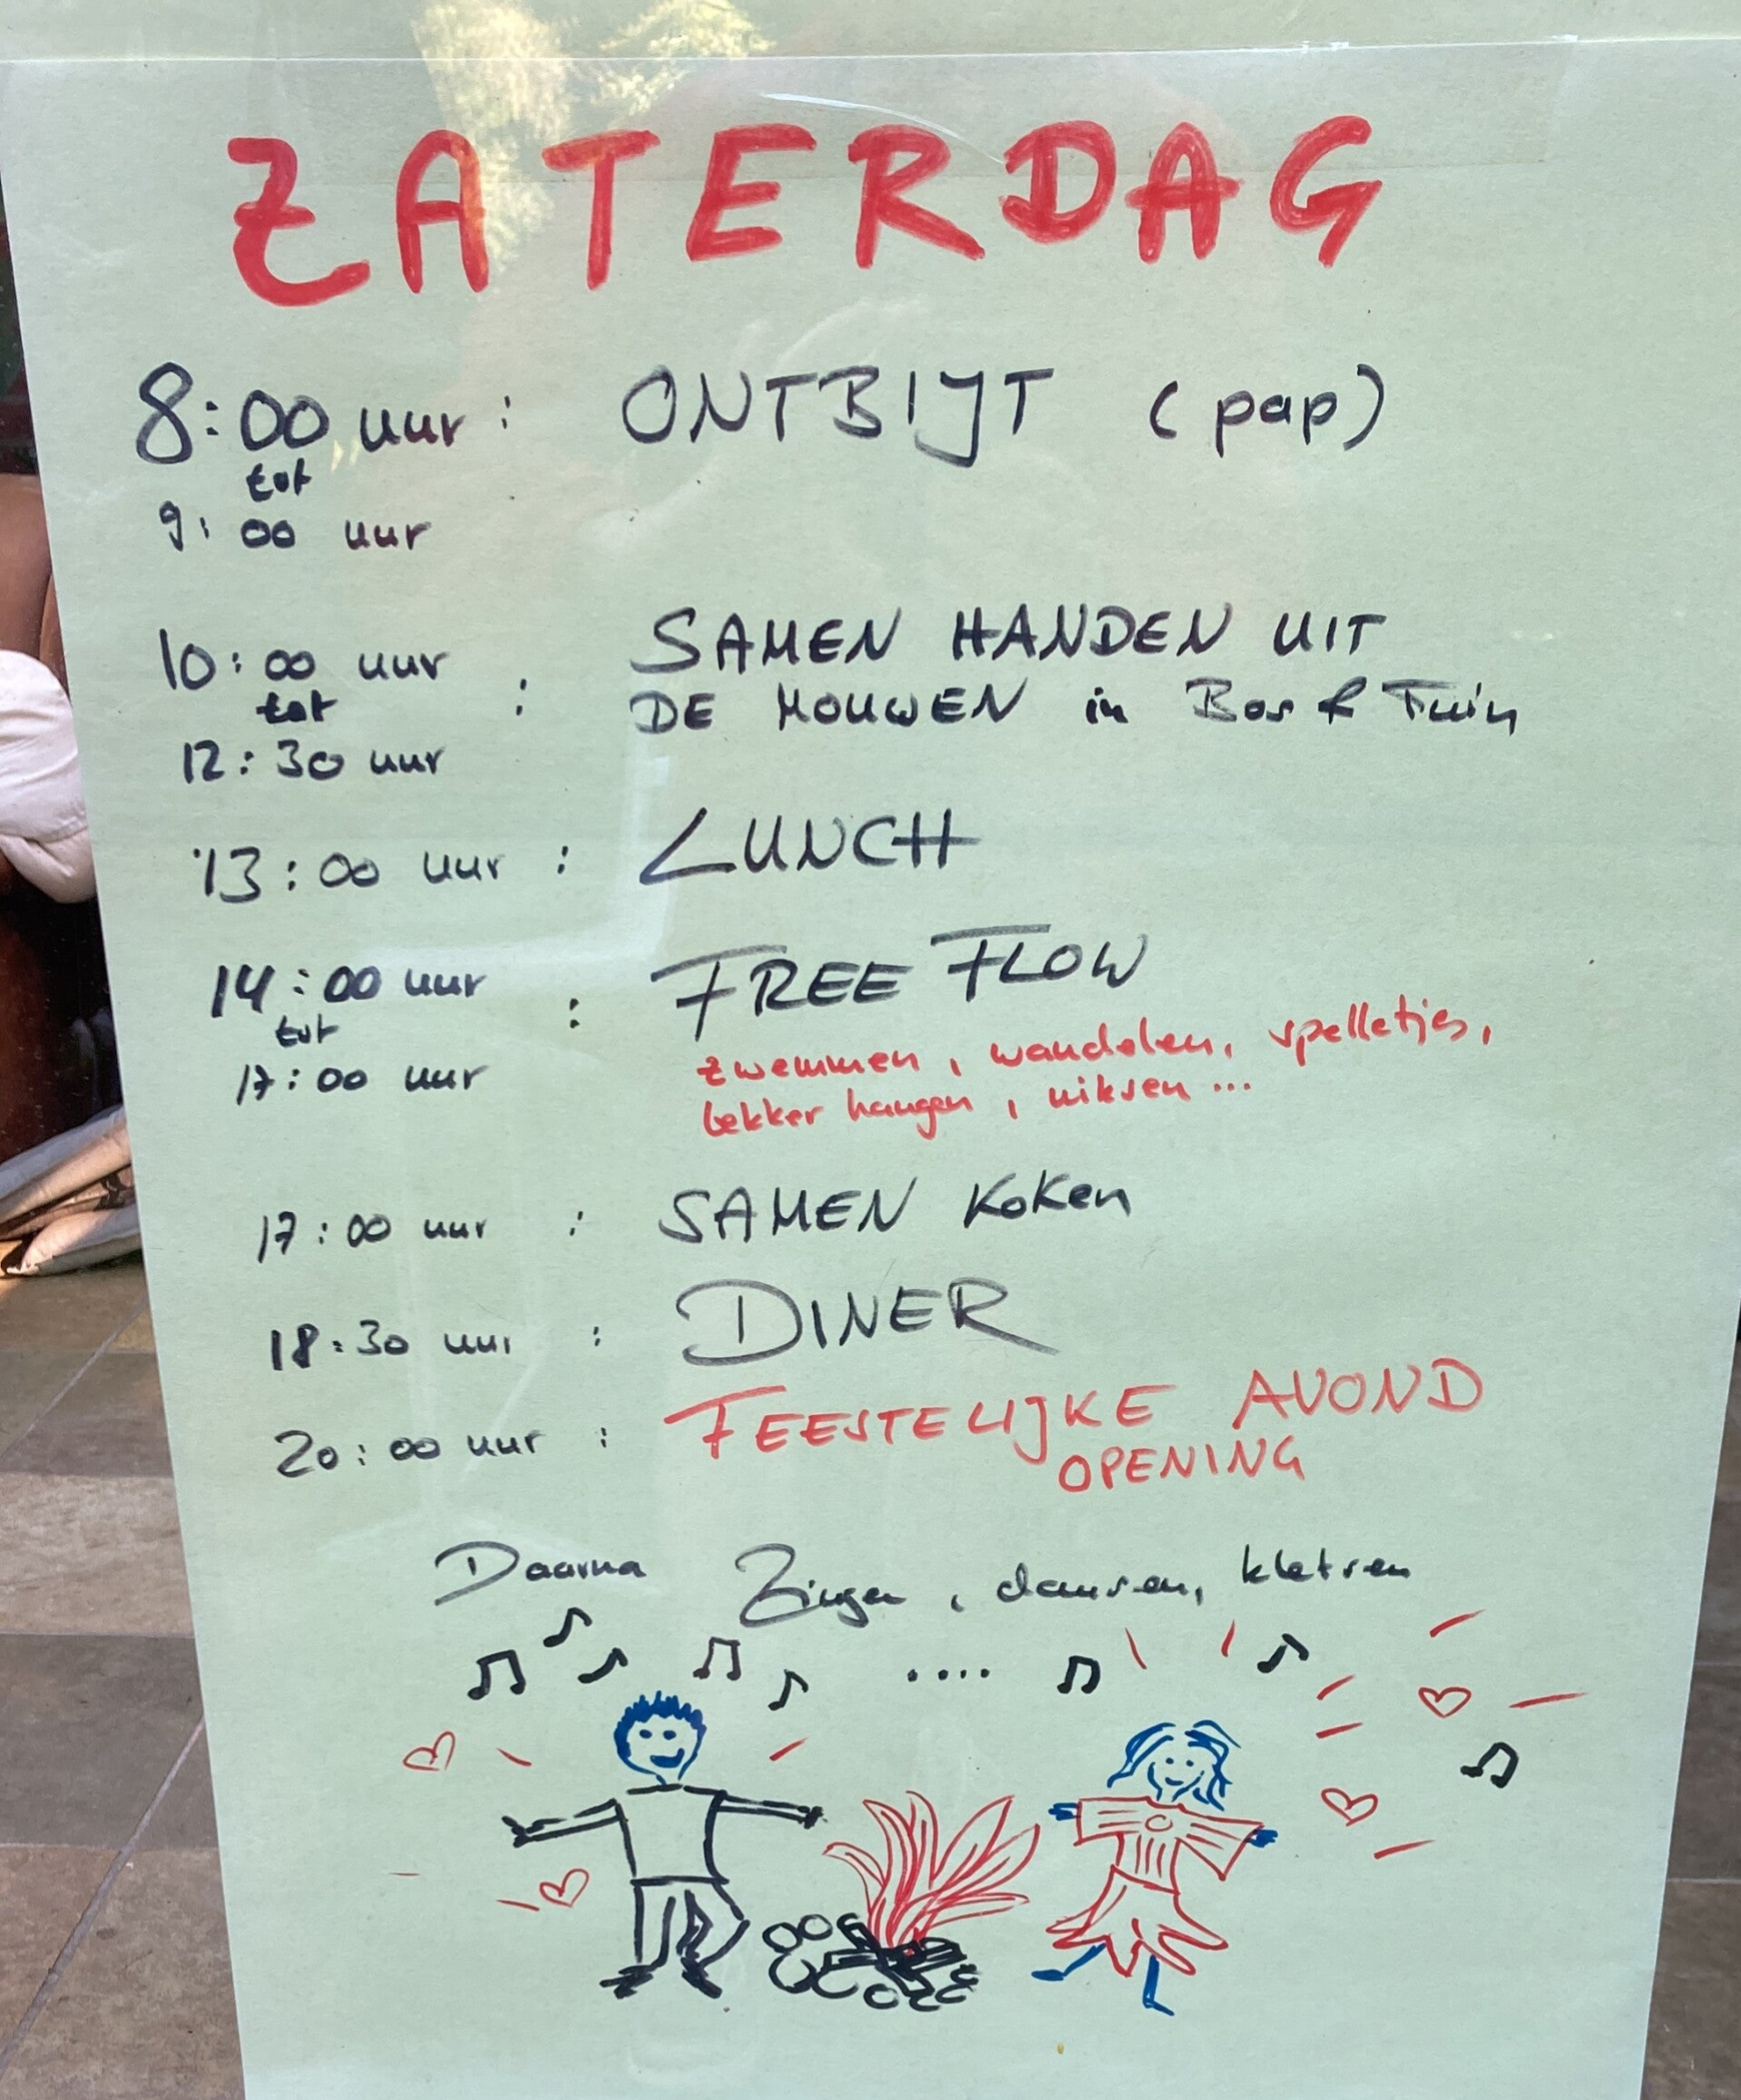 ZATERDAG
8:00 uur : ONTBIJT (pap)
tot
9:00 uur
10:00 uur SAMEN HANDEN UIT
tot : DE MOUWEN in Bos & Tuin
12:30 uur
13:00 uur : LUNCH
14:00 uur : FREE FLOW
tot
17:00 uur zwemmen, wandelen, spelletjes,
lekker hangen, niksen ...
17:00 uur : SAMEN Koken
18:30 uur : DINER
20:00 uur : FEESTELIJKE AVOND
OPENING
Daarna Zingen, dansen, kletsen
....